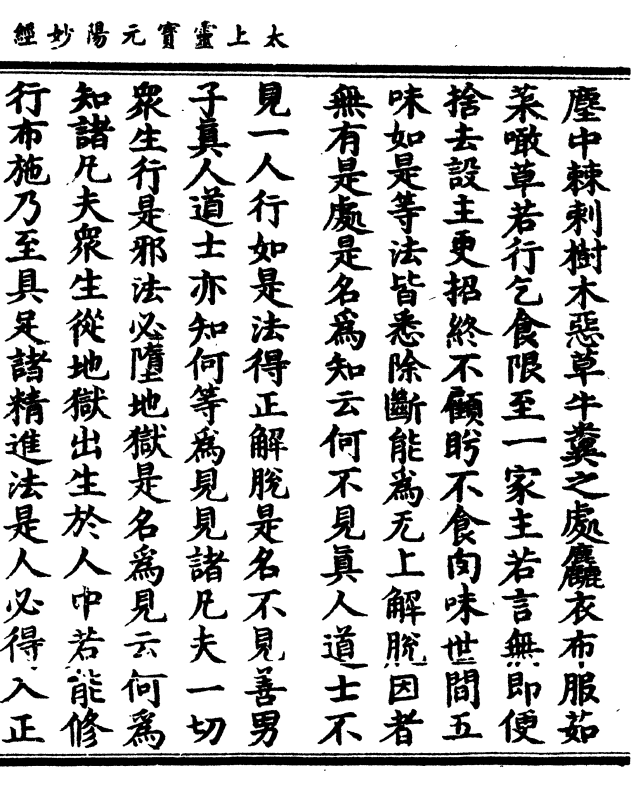 太上靈寶元陽妙經
塵中棘刺樹木惡草牛糞之處麤衣布服茹
菜噉草若行乞食限至一家主若言無即便
捨去設主更招終不顧眄不食肉味世間五
味如是等法皆悉除斷能為无上解脫因者
無有是處是名為知云何不見真人道士不
見一人行如是法得正解脫是名不見善男
子真人道士亦知何等為見見諸凡夫一切
眾生行是邪法必墮地獄是名為見云何為
知諸凡夫眾生從地獄出生於人中若能修
行布施乃至具足諸精進法是人必得入正